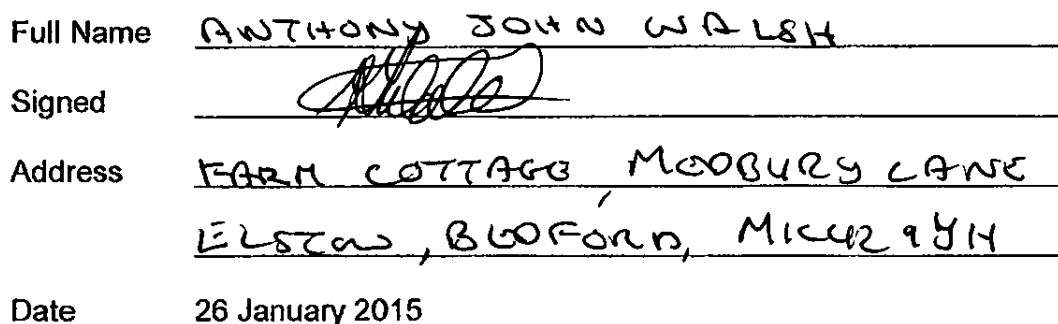 Full Name ANTHONY JOHN WALSH
Signed
Address FARM COTTAGE, MEDBURY LANE
ELSTOW, BEDFORD, MK42 9YH
Date 26 January 2015